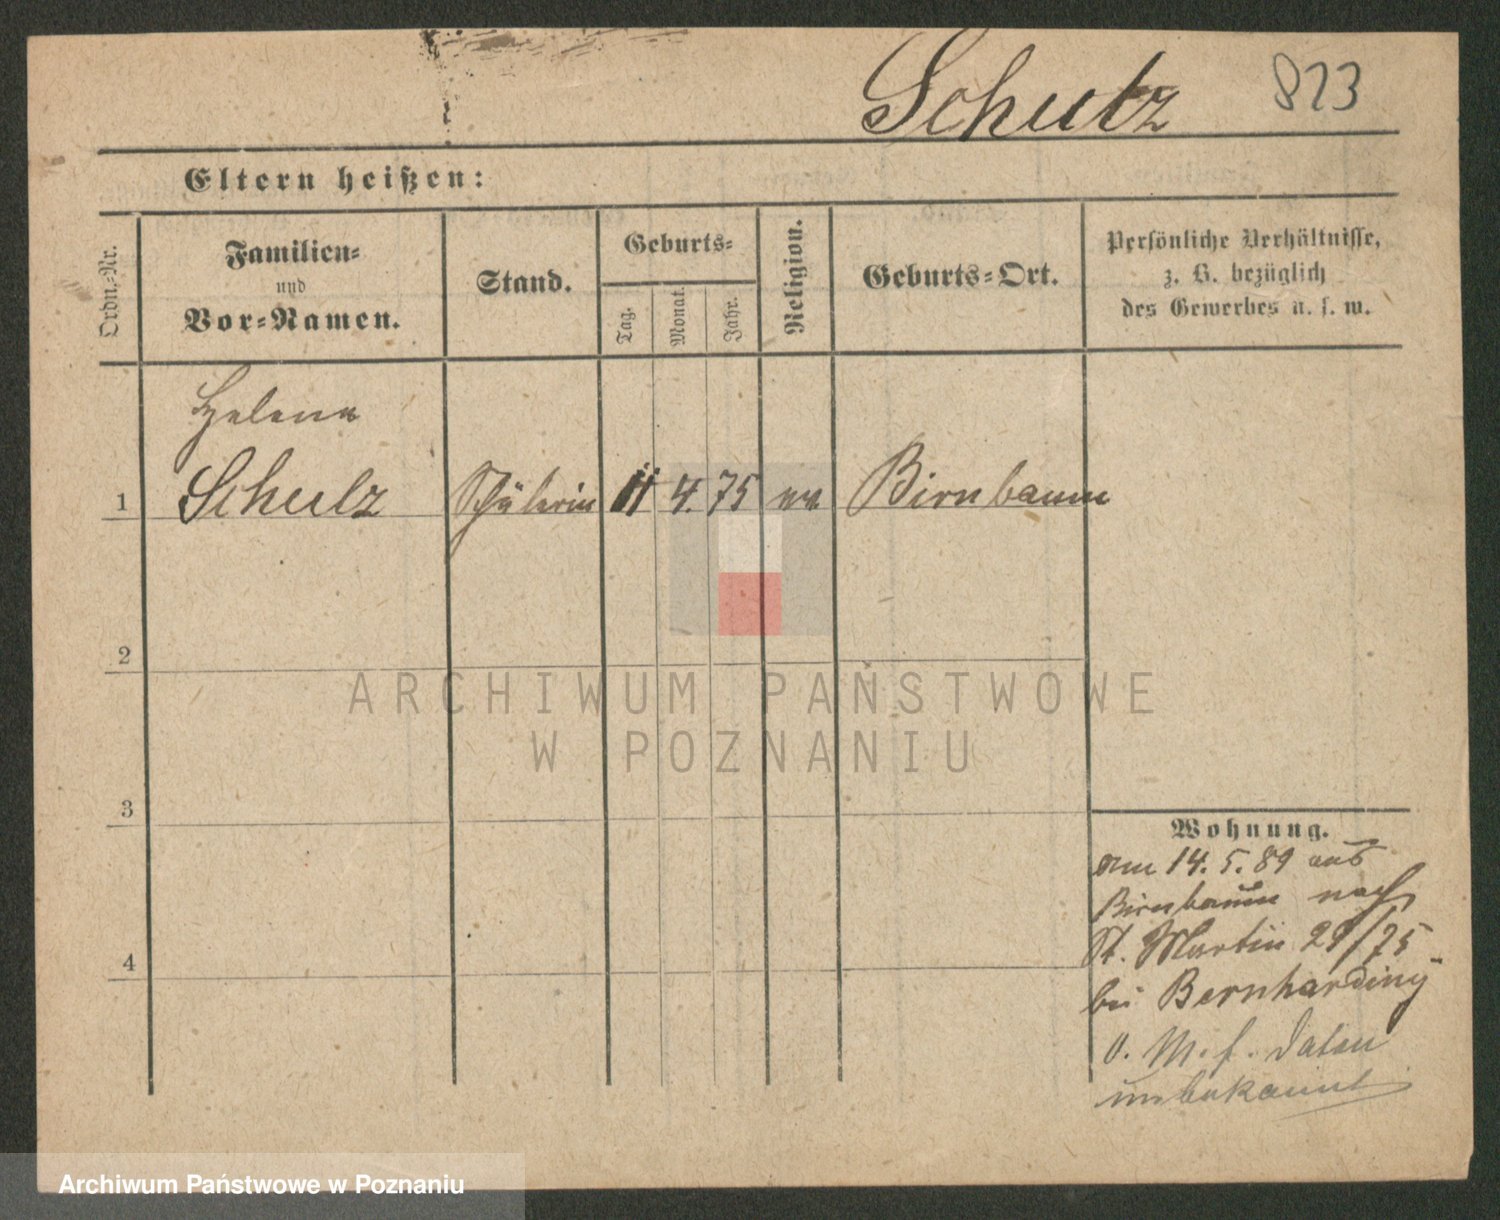 Schulz 823
Eltern heißen:
Ordn.-Nr.
Familien-
und
Vor-Namen.
Stand.
Geburts-
Tag.
Monat.
Jahr.
Religion.
Geburts-Ort.
Persönliche Verhältnisse,
z. B. bezüglich
des Gewerbes u. s. w.
Helene
1 Schulz Schülerin 11 4. 75 ev Birnbaum
2
ARCHIWUM PAŃSTWOWE
W POZNANIU
3
Wohnung.
am 14. 5. 89 aus
Birnbaum nach
St. Martin 29/75
4
bei Bernhardiny
v. M. f. Daten
unbekannt
Archiwum Państwowe w Poznaniu